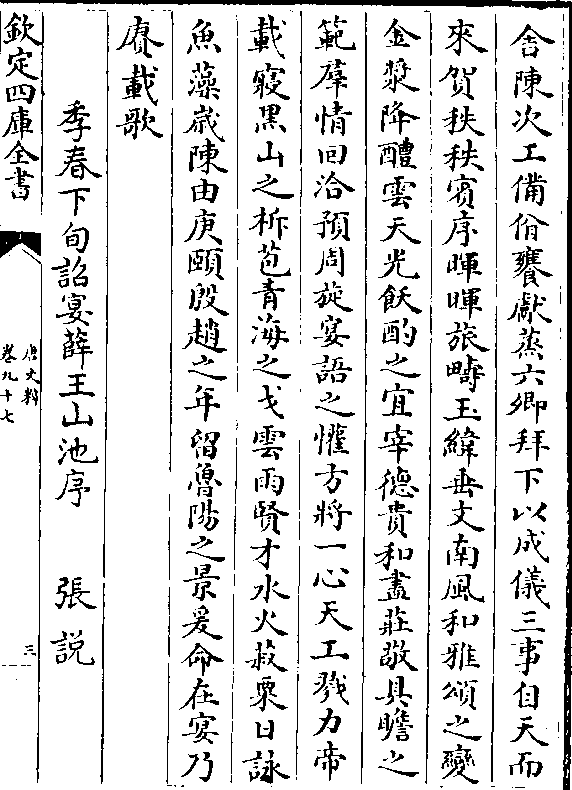 舎陳次工備脩饔獻蒸六卿拜下以成儀三事自天而
來賀秩秩賓序暉暉旅疇玉緯垂文南風和雅頌之變
金漿降醴雲天光飫酌之宜宰德貴和盡莊敬具瞻之
範羣情回洽預周旋宴語之懽方將一心天工戮力帝
載寢黒山之柝苞青海之戈雲雨賢才水火菽粟日詠
魚藻嵗陳由庚頤殷趙之年留魯陽之景爰命在宴乃
賡載歌
季春下旬詔宴薛王山池序 張説
欽定四庫全書
唐文粹
卷九十七
三